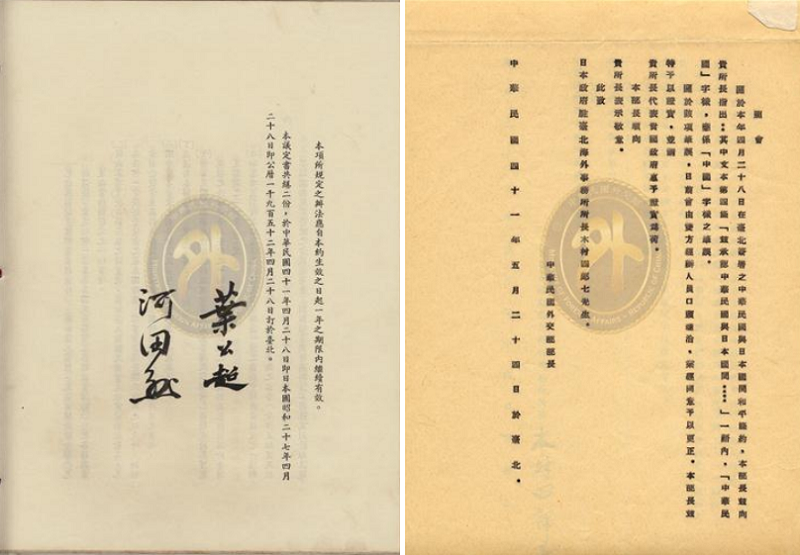 本項所規定之辦法應自本約生效之日起一年之期限內繼續有效。
本議定書共繕二份，於中華民國四十一年四月二十八日即日本國昭和二十七年四月
二十八日即公曆一千九百五十二年四月二十八日訂於臺北。
葉公超
河田烈
外
照會
關於本年四月二十八日在臺北簽署之中華民國與日本國間和平條約，本部長茲向
貴所長指出：其中文本第四條「茲承認中華民國與日本國間‥‥」一語內，「中華民
國」字樣，應係「中國」字樣之繕誤。
關於該項繕誤，日前曾由雙方經辦人員口頭洽，業經同意予以更正。本部長茲
特予以證實，並請
貴所長代表貴國政府惠予證實為荷。
本部長順向
貴所長表示敬意。
此致
日本政府駐臺北海外事務所所長木村四郎七先生。
中華民國外交部部長
中華民國四十一年五月二十四日於臺北。
外